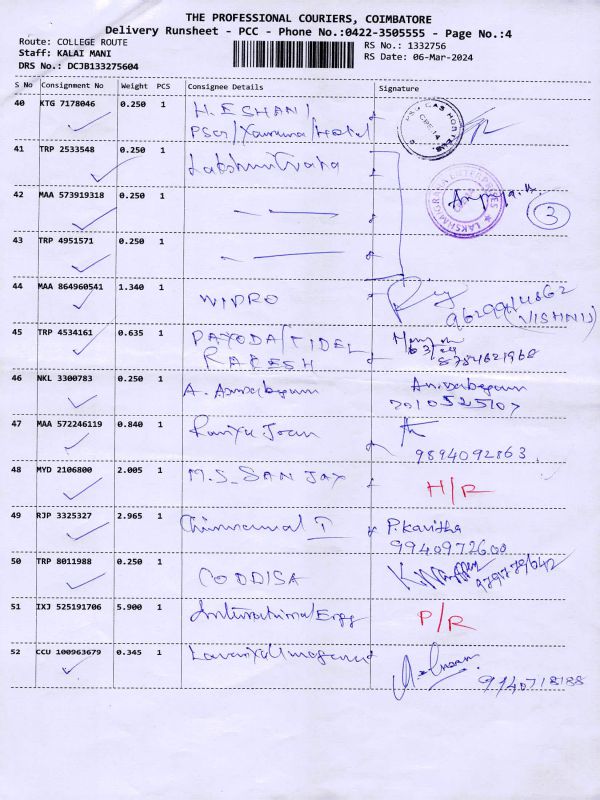 THE PROFESSIONAL COURIERS, COIMBATORE
Delivery Runsheet - PCC - Phone No.:0422-3505555 - Page No.:4
Route: COLLEGE ROUTE
RS No.: 1332756
Staff: KALAI MANI
RS Date: 06-Mar-2024
DRS No.: DCJB133275604
S No Consignment No Weight PCS Consignee Details Signature
40 KTG 7178046 0.250 1 H. ESHANI
PSG / Yamuna / Hostel
41 TRP 2533548 0.250 1
LAKSHMIGRAHA ENTERPRISES
42 MAA 573919318 0.250 1 — —
3
43 TRP 4951571 0.250 1 — —
44 MAA 864960541 1.340 1 WIPRO
(VISHNU)
45 TRP 4534161 0.635 1 PAYODA / TIDEL
RAKESH
8754621968
46 NKL 3300783 0.250 1 A. Anvarbegum Anvarbegum
7010525107
47 MAA 572246119 0.840 1 Ramya Joan
9894092863
48 MYD 2106800 2.005 1 M.S. SANJAY H/R
49 RJP 3325327 2.965 1 Chinnamal T P. Kavitha
9940972600
50 TRP 8011988 0.250 1 CODDISA
51 IXJ 525191706 5.900 1 International Engg P/R
52 CCU 100963679 0.345 1
9940718188